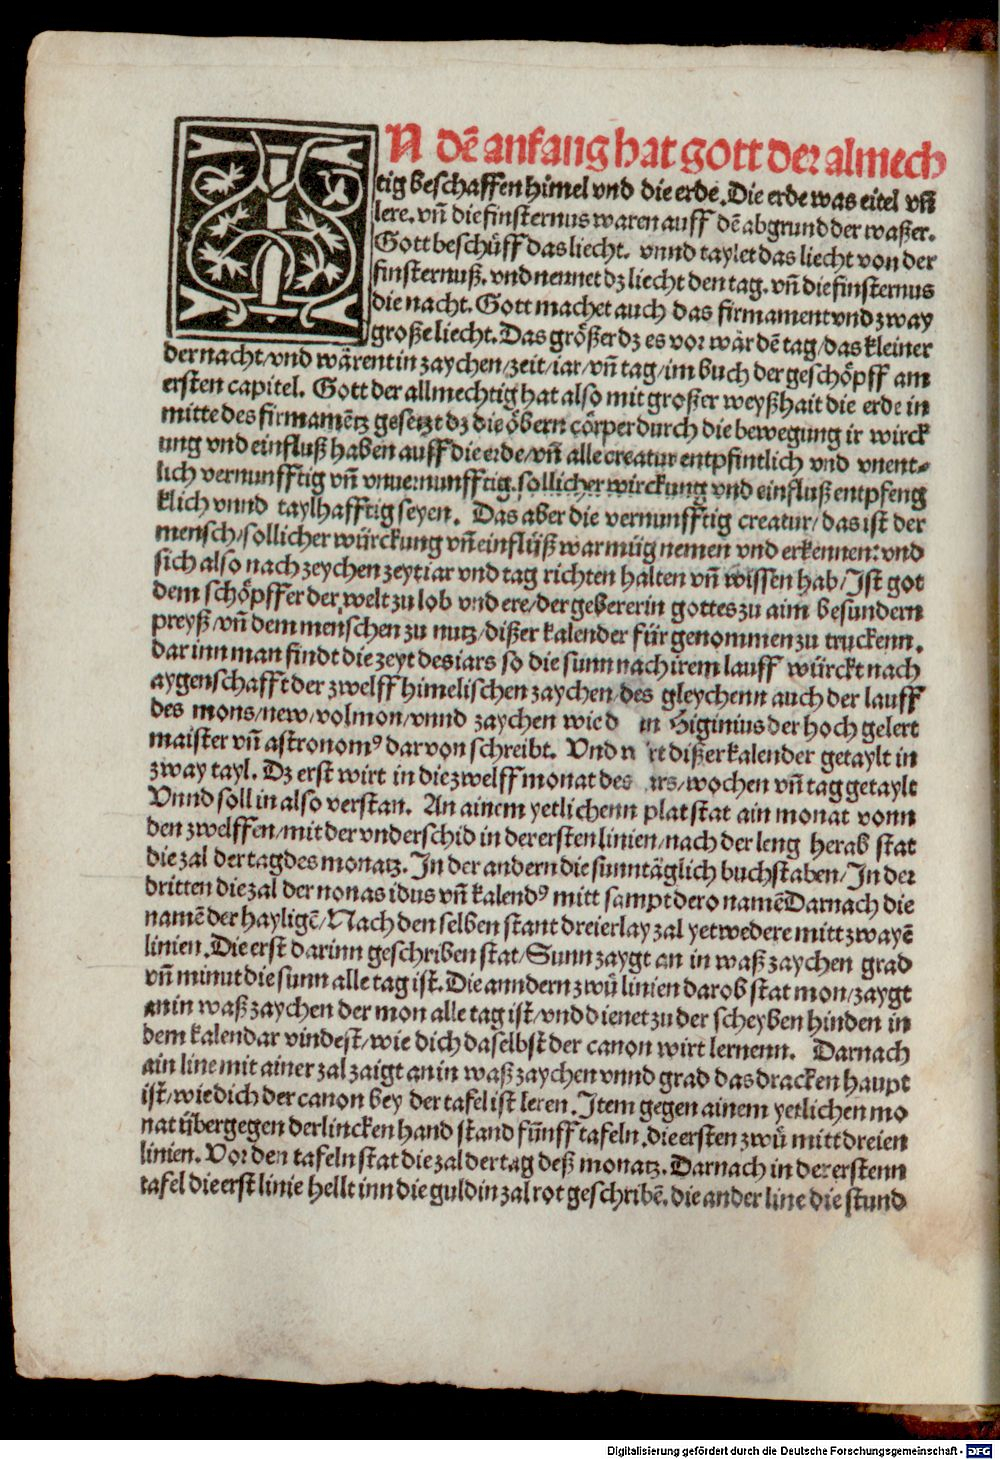 IN dē anfang hat gott der almech
tig beschaffen himel vnd die erde. Die erde was eitel vn̄
lere. vn̄ die finsternus waren auff dē abgrund der waßer.
Gott beschüff das liecht. vnnd taylet das liecht von der
finsternuß. vnd nennet dz liecht den tag. vn̄ die finsternus
die nacht. Gott machet auch das firmament vnd zway
große liecht. Das größer dz es vor wär dē tag/das kleiner
der nacht/vnd wären in zaychen/zeit/iar/vn̄ tag/im buch der geschöpff am
ersten capitel. Gott der allmechtig hat also mit großer weyßhait die erde in
mitte des firmamētz gesetzt dz die öbern cörper durch die bewegung ir wirck
ung vnd einfluß haben auff die erde/vn̄ alle creatur entpfintlich vnd vnent⸗
lich vernunfftig vn̄ vnuernunfftig. sollicher wirckung vnd einfluß entpfeng
klich vnnd taylhafftig seyen. Das aber die vernunfftig creatur/das ist der
mensch/sollicher würckung vn̄ einflüß war müg nemen vnd erkennen: vnd
sich also nach zeychen zeyt iar vnd tag richten halten vn̄ wissen hab/Ist got
dem schöpffer der welt zu lob vnd ere/der gebererin gottes zu aim besundern
preyß/vn̄ dem menschen zu nutz/dißer kalender für genommen zu truckenn.
dar inn man findt die zeyt des iars so die sunn nach irem lauff würckt nach
aygenschafft der zwelff himelischen zaychen/des gleychenn auch der lauff
des mons/new/volmon/vnnd zaychen wie d in Higinius der hoch gelert
maister vn̄ astronomꝰ dar von schreibt. Vnd rt dißer kalender getaylt in
zway tayl. Dz erst wirt in die zwelff monat des rs/wochen vn̄ tag getaylt
Vnnd soll in also verstan. An ainem yetlichenn plat stat ain monat vonn
den zwelffen/mit der vnderschid in der ersten linien/nach der leng herab stat
die zal der tag des monatz. In der andern die sunntäglich buchstaben/In der
dritten die zal der nonas idus vn̄ kalendꝰ mitt sampt dero namē Darnach die
namē der hayligē/Nach den selben stant dreierlay zal yetwedere mitt zwayē
linien. Die erst darinn geschriben stat/Sunn zaygt an in waß zaychen grad
vn̄ minut die sunn alle tag ist. Die anndern zwü linien darob stat mon/zaygt
an in waß zaychen der mon alle tag ist/vnd dienet zu der scheyben hinden in
dem kalendar vindest/wie dich daselbst der canon wirt lernenn. Darnach
ain line mit ainer zal zaigt an in waß zaychen vnnd grad das dracken haupt
ist/wie dich der canon bey der tafel ist leren. Item gegen ainem yetlichen mo
nat übergegen der lincken hand stand fünff tafeln. die ersten zwü mitt dreien
linien. Vor den tafeln stat die zal der tag deß monatz. Darnach in der erstenn
tafel die erst linie hellt inn die guldin zal rot geschribē. die ander line die stund
Digitalisierung gefördert durch die Deutsche Forschungsgemeinschaft - DFG